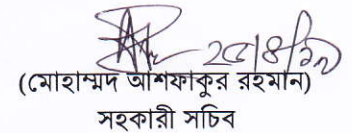 (মোহাম্মদ আশফাকুর রহমান)
সহকারী সচিব